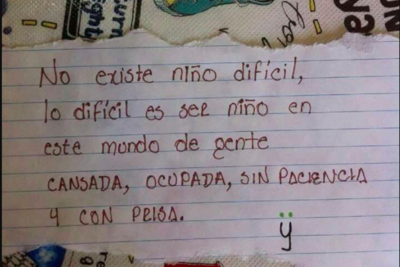 No existe niño difícil,
lo difícil es ser niño en
este mundo de gente
CANSADA, OCUPADA, SIN PACIENCIA
Y CON PRISA.
ÿ